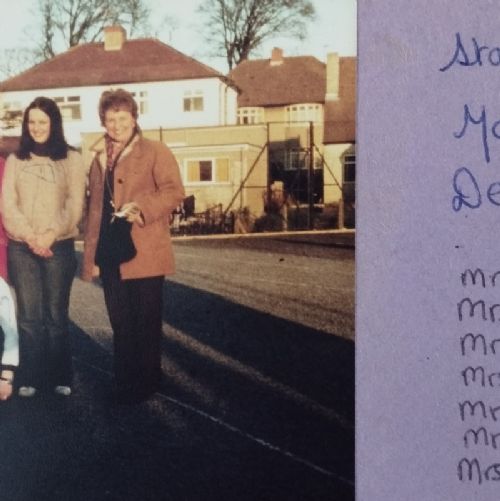 Sta
Ma
De
Mr
Mr
Mr
Mr
Mr
Mr
Mrs